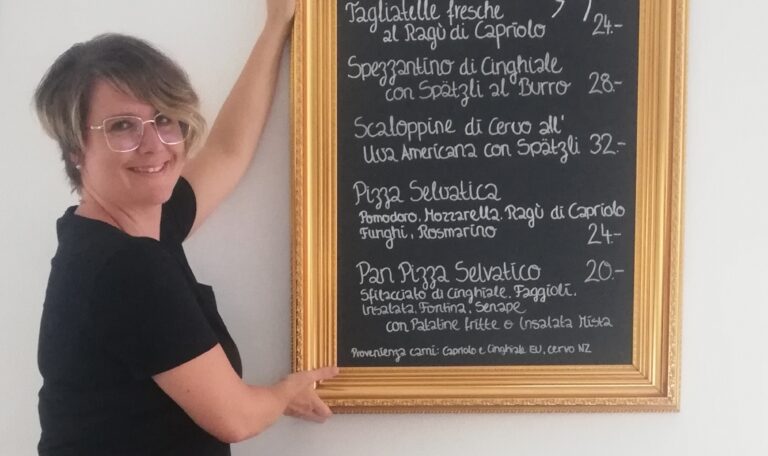 Tagliatelle fresche
al Ragù di Capriolo 24.-
Spezzantino di Cinghiale
con Spätzli al Burro 28.-
Scaloppine di Cervo all'
Uva Americana con Spätzli 32.-
Pizza Selvatica
Pomodoro, Mozzarella, Ragù di Capriolo
Funghi, Rosmarino 24.-
Pan Pizza Selvatico 20.-
Sfilacciato di Cinghiale, Faggioli,
Insalata, Fontina, Senape
con Patatine fritte o Insalata Mista
Provenienza carni: Capriolo e Cinghiale EU, cervo NZ